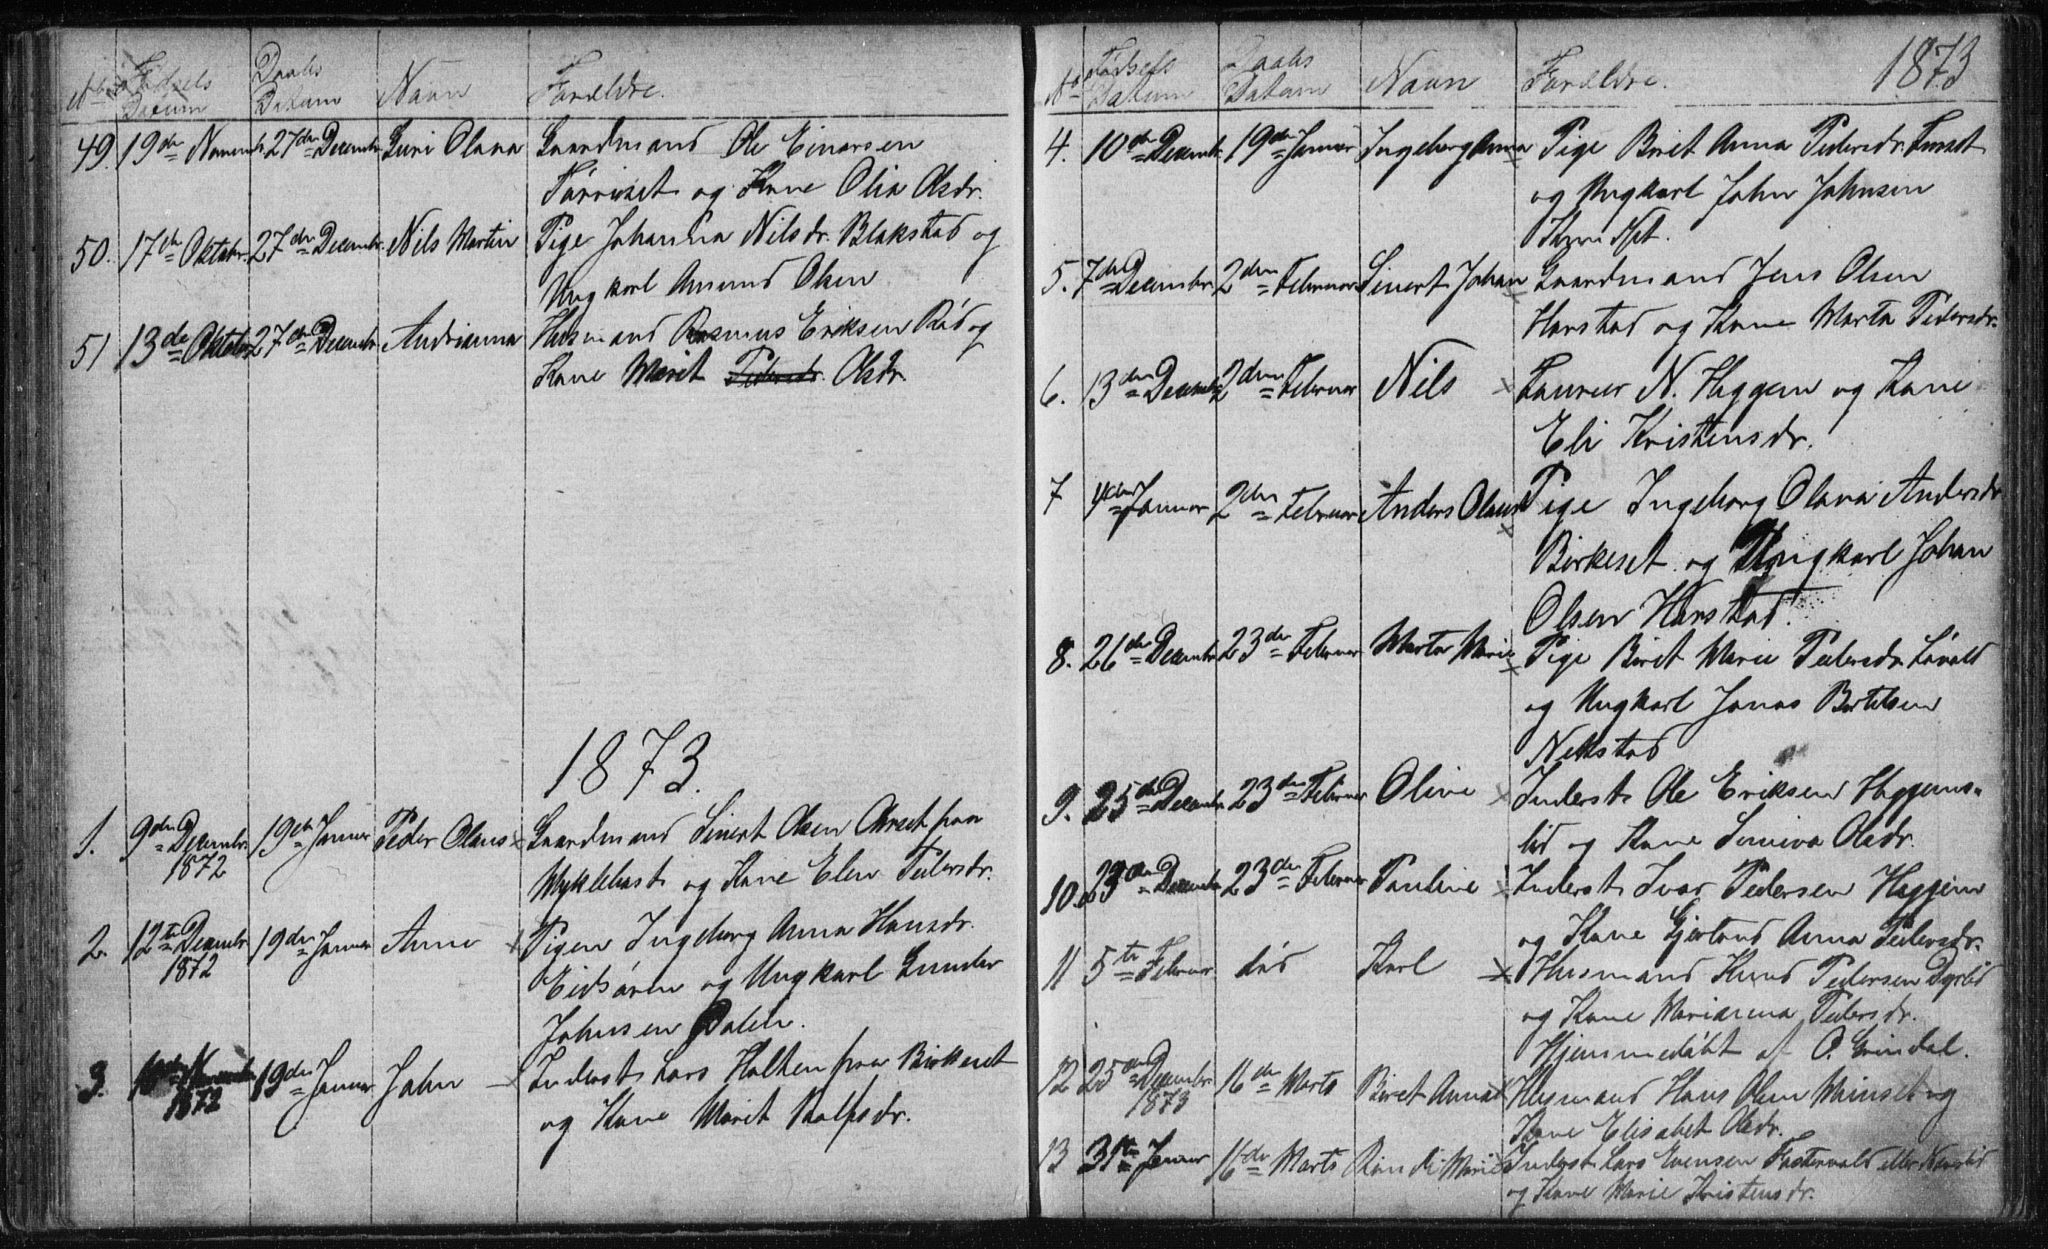 No Fødsels Datum Daabs Datum Navn Forældre.
49. 19de Novembr. 27de Decembr. Guri Olava Gaardmand Ole Einarsen
og Kone Olia Olsdr.
50. 17de Oktobr. 27de Decembr. Nils Martin Pige Johanna Nilsdr. Blakstad og
Ungkarl Amund Olsen
51 13de Oktobr. 27de Decembr. Andrianna Husmand Rasmus Eriksen Rød og
Kone Marit Pedersdr. Olsdr.
1873.
1. 9de Decembr. 1872 19de Januar Peder Olaus Gaardmand Sivert Olsen paa
Myklebust og Kone Elen Pedersdr.
2. 12te Decembr. 1872 19de Januar Anne Pigen Ingeborg Anna Hansdr.
Eidsøren og Ungkarl Gunder
Johnsen Dalen.
3. 10de Novembr. 1872 19de Januar John Inderst Lars Halten paa Birkeset
og Kone Marit Rolfsdr.
1873
No Fødsels Datum Daabs Datum Navn Forældre.
4. 10de Decembr. 19de Januar Ingeborg Anna Pige Beret Anna Pedersdr.
og Ungkarl John Johnsen
5. 7de Decembr. 2den Februar Sivert Johan Gaardmand Jens Olsen
Harstad og Kone Marta Pedersdr.
6. 13de Decembr. 2den Februar Nils Laurits N. Haggem og Kone
Eli Kristensdr.
7 4de Januar 2den Februar Anders Olaus Pige Ingeborg Olava Andersdr.
Birkeset og Ungkarl Johan
Olsen Harstad.
8. 26de Decembr. 23de Februar Marta Marie Pige Beret Marie Pedersdr. Løvold
og Ungkarl Jonas Bertelsen
Nekstad
9. 25de Decembr. 23de Februar Olive Inderst Ole Eriksen Haggems-
lid og Kone Siniva Olsdr.
10. 23de Decembr. 23de Februar Pauline Inderst Ivar Pedersen Haggem
og Kone Gjertrud Anna Pedersdr.
11 5te Februar død Karl Husmand Knud Pedersen Dyrlid
og Kone Marianna Pedersdr.
Hjemmedøbt af O. Grindal.
12 25de Decembr. 1873 16de Marts Beret Anna Husmand Hans Olsen og
Kone Elisabet Olsdr.
13 31te Januar 16de Marts Marie Inderst Lars Evensen eller
og Kone Marie Kristensdr.